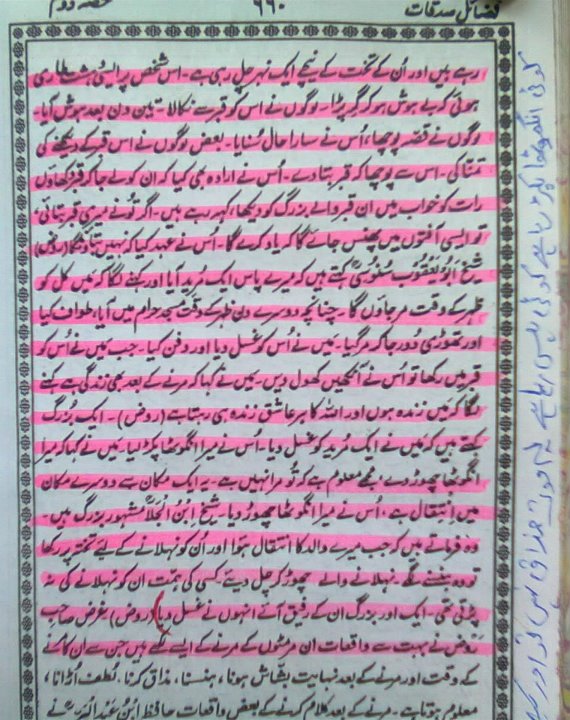 فضائل صدقات ۶۶۰ حصہ دوم
رہے ہیں اور اُن کے تخت کے نیچے ایک نہر چل رہی ہے۔ اس شخص پر ایسی ہیبت طاری
ہوئی کہ بے ہوش ہو کر گر پڑا۔ لوگوں نے اس کو قبر سے نکالا۔ تین دن بعد ہوش آیا۔
لوگوں نے قصّہ پوچھا، اُس نے سارا حال سُنایا۔ بعض لوگوں نے اس قبر کے دیکھنے کی
تمنا کی۔ اس سے پوچھا کہ قبر بتا دے۔ اُس نے ارادہ بھی کیا کہ ان کو لے جا کر قبر دکھاؤں
رات کو خواب میں ان قبر والے بزرگ کو دیکھا، کہہ رہے ہیں۔ اگر تُو نے میری قبر بتائی،
تو ایسی آفتوں میں پھنس جائے گا کہ یاد کرے گا۔ اُس نے عہد کیا کہ نہیں بتاؤنگا (روض)
شیخ ابو یعقوب سنوسیؒ کہتے ہیں کہ میرے پاس ایک مُرید آیا اور کہنے لگا کہ میں کل کو
ظہر کے وقت مر جاؤں گا۔ چنانچہ دوسرے دن ظہر کے وقت مسجد حرام میں آیا، طواف کیا
اور تھوڑی دُور جا کر مر گیا۔ میں نے اُس کو غسل دیا اور دفن کیا۔ جب میں نے اُس کو
قبر میں رکھا تو اُس نے آنکھیں کھول دیں۔ میں نے کہا کہ مرنے کے بعد بھی زندگی ہے کہنے
لگا کہ میں زندہ ہوں اور اللہ کا ہر عاشق زندہ ہی رہتا ہے (روض)۔ ایک بُزرگ
کہتے ہیں کہ میں نے ایک مُرید کو غسل دیا۔ اُس نے میرا انگوٹھا پکڑ لیا۔ میں نے کہا کہ میرا
انگوٹھا چھوڑ دے، مجھے معلوم ہے کہ تُو مرا نہیں ہے۔ یہ ایک مکان سے دوسرے مکان
میں انتقال ہے، اُس نے میرا انگوٹھا چھوڑ دیا۔ شیخ ابن الجلاؒ مشہور بزرگ ہیں۔
وہ فرماتے ہیں کہ جب میرے والد کا انتقال ہوا اور اُن کو نہلانے کے لیے تختہ پر رکھا
تو وہ ہنسنے لگے۔ نہلانے والے چھوڑ کر چل دیئے۔ کسی کی ہمت ان کو نہلانے کی نہ
پڑتی تھی۔ ایک اور بزرگ ان کے رفیق آئے انہوں نے غسل دیا (روض) غرض صاحب
روض نے بہت سے واقعات ان مرنے کے ایسے لکھے ہیں جن سے ان کا مرنے
کے وقت اور مرنے کے بعد نہایت بشاش ہونا، ہنسنا، مذاق کرنا۔ لُطف اُڑانا،
معلوم ہوتا ہے۔ مرنے کے بعد کلام کرنے کے بعض واقعات حافظ ابن عبد البرؒ نے
کوئی انگوٹھا پکڑ رہا ہے کوئی ہنس رہا ہے یہ موت مذاق نہیں تو اور